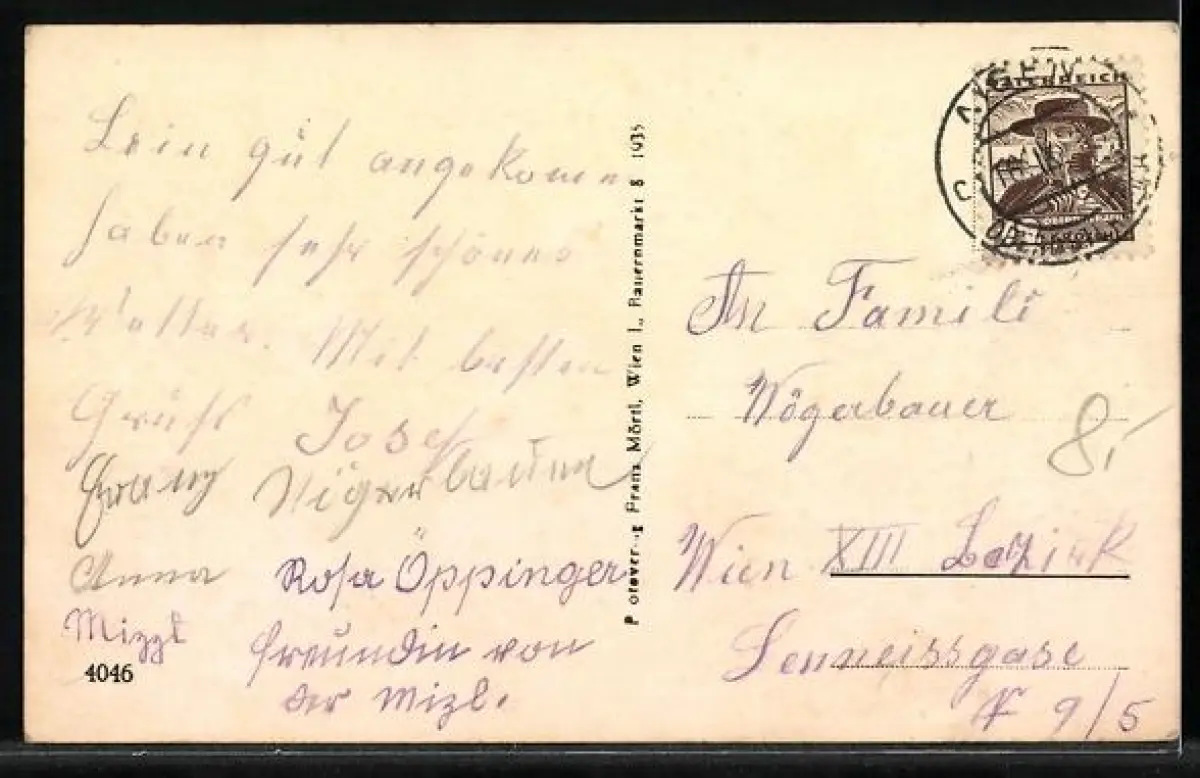 Sein gut angekomen
haben sehr schönes
Wetter. Mit besten
Grüß Josef
Franz Wögerbauer
Anna Rosa Öppinger
Mizzl freundin von
der Mizl.
4046
Franz Mörtl, Wien I., Bauernmarkt 8 1935
ÖSTERREICH
An Famili
Wögerbauer
8,-
Wien XIII Bezirk
Senneissgase
N 9/5